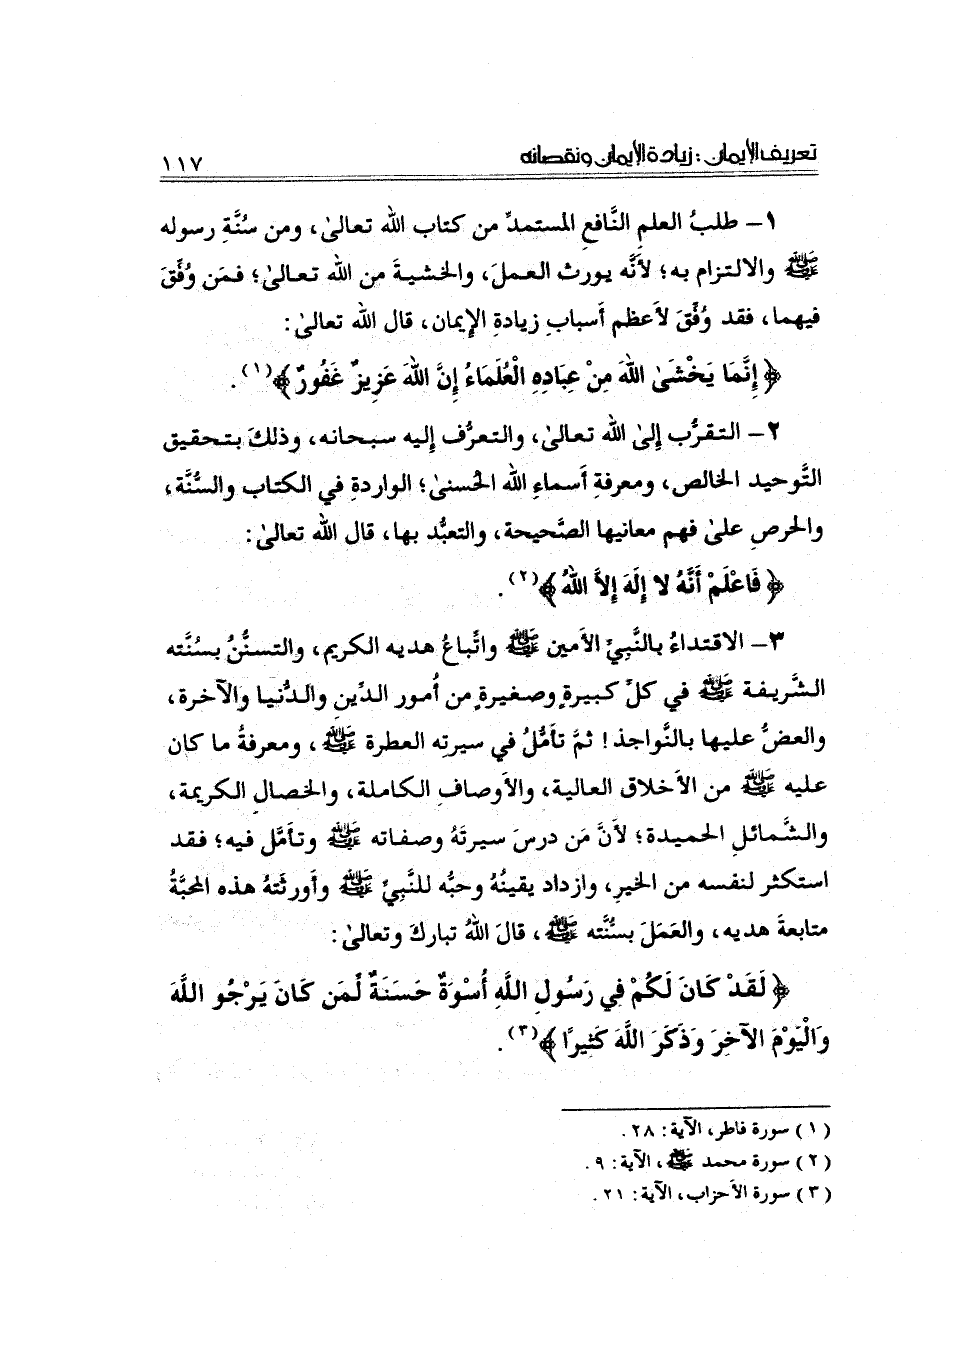 تعريف الإيمان : زيادة الإيمان ونقصانه ١١٧
١- طلبُ العلمِ النَّافعِ المستمدِّ من كتاب الله تعالىٰ، ومن سُنَّةِ رسوله
ﷺ والالتزام به؛ لأنَّه يورث العملَ، والخشيةَ من الله تعالىٰ؛ فمَن وُفِّقَ
فيهما، فقد وُفِّقَ لأعظم أسبابِ زيادةِ الإيمان، قال الله تعالىٰ:
﴿إِنَّمَا يَخْشَىٰ اللهَ مِنْ عِبَادِهِ الْعُلَمَاءُ إِنَّ اللهَ عَزِيزٌ غَفُورٌ﴾(١).
٢- التقرُّب إلىٰ الله تعالىٰ، والتعرُّف إليه سبحانه، وذلكَ بتحقيق
التَّوحيد الخالص، ومعرفةِ أسماءِ الله الحُسنىٰ؛ الواردةِ في الكتاب والسُّنَّة،
والحرصِ علىٰ فهم معانيها الصَّحيحة، والتعبُّد بها، قال الله تعالىٰ:
﴿فَاعْلَمْ أَنَّهُ لا إِلَهَ إِلاَّ اللهُ﴾(٢).
٣- الاقتداءُ بالنَّبيِّ الأمين ﷺ واتِّباعُ هديه الكريم، والتسنُّنُ بسُنَّته
الشَّريفة ﷺ في كلِّ كبيرةٍ وصغيرةٍ من أمور الدِّينِ والدُّنيا والآخرة،
والعضُّ عليها بالنَّواجذ! ثمَّ تأمُّلُ في سيرتِه العطرة ﷺ، ومعرفةُ ما كان
عليه ﷺ من الأخلاق العالية، والأوصافِ الكاملة، والخصالِ الكريمة،
والشَّمائلِ الحميدة؛ لأنَّ مَن درسَ سيرتَهُ وصفاته ﷺ وتأمَّل فيه؛ فقد
استكثر لنفسه من الخيرِ، وازداد يقينُهُ وحبُّه للنَّبيِّ ﷺ وأورثَتهُ هذه المحبَّةُ
متابعةَ هديه، والعَمَلَ بسنَّته ﷺ، قالَ اللهُ تباركَ وتعالىٰ:
﴿لَقَدْ كَانَ لَكُمْ فِي رَسُولِ اللَّهِ أُسْوَةٌ حَسَنَةٌ لِّمَن كَانَ يَرْجُو اللَّهَ
وَالْيَوْمَ الآخِرَ وَذَكَرَ اللَّهَ كَثِيرًا﴾(٣).
(١) سورة فاطر، الآية: ٢٨.
(٢) سورة محمد ﷺ، الآية: ٩.
(٣) سورة الأحزاب، الآية: ٢١.